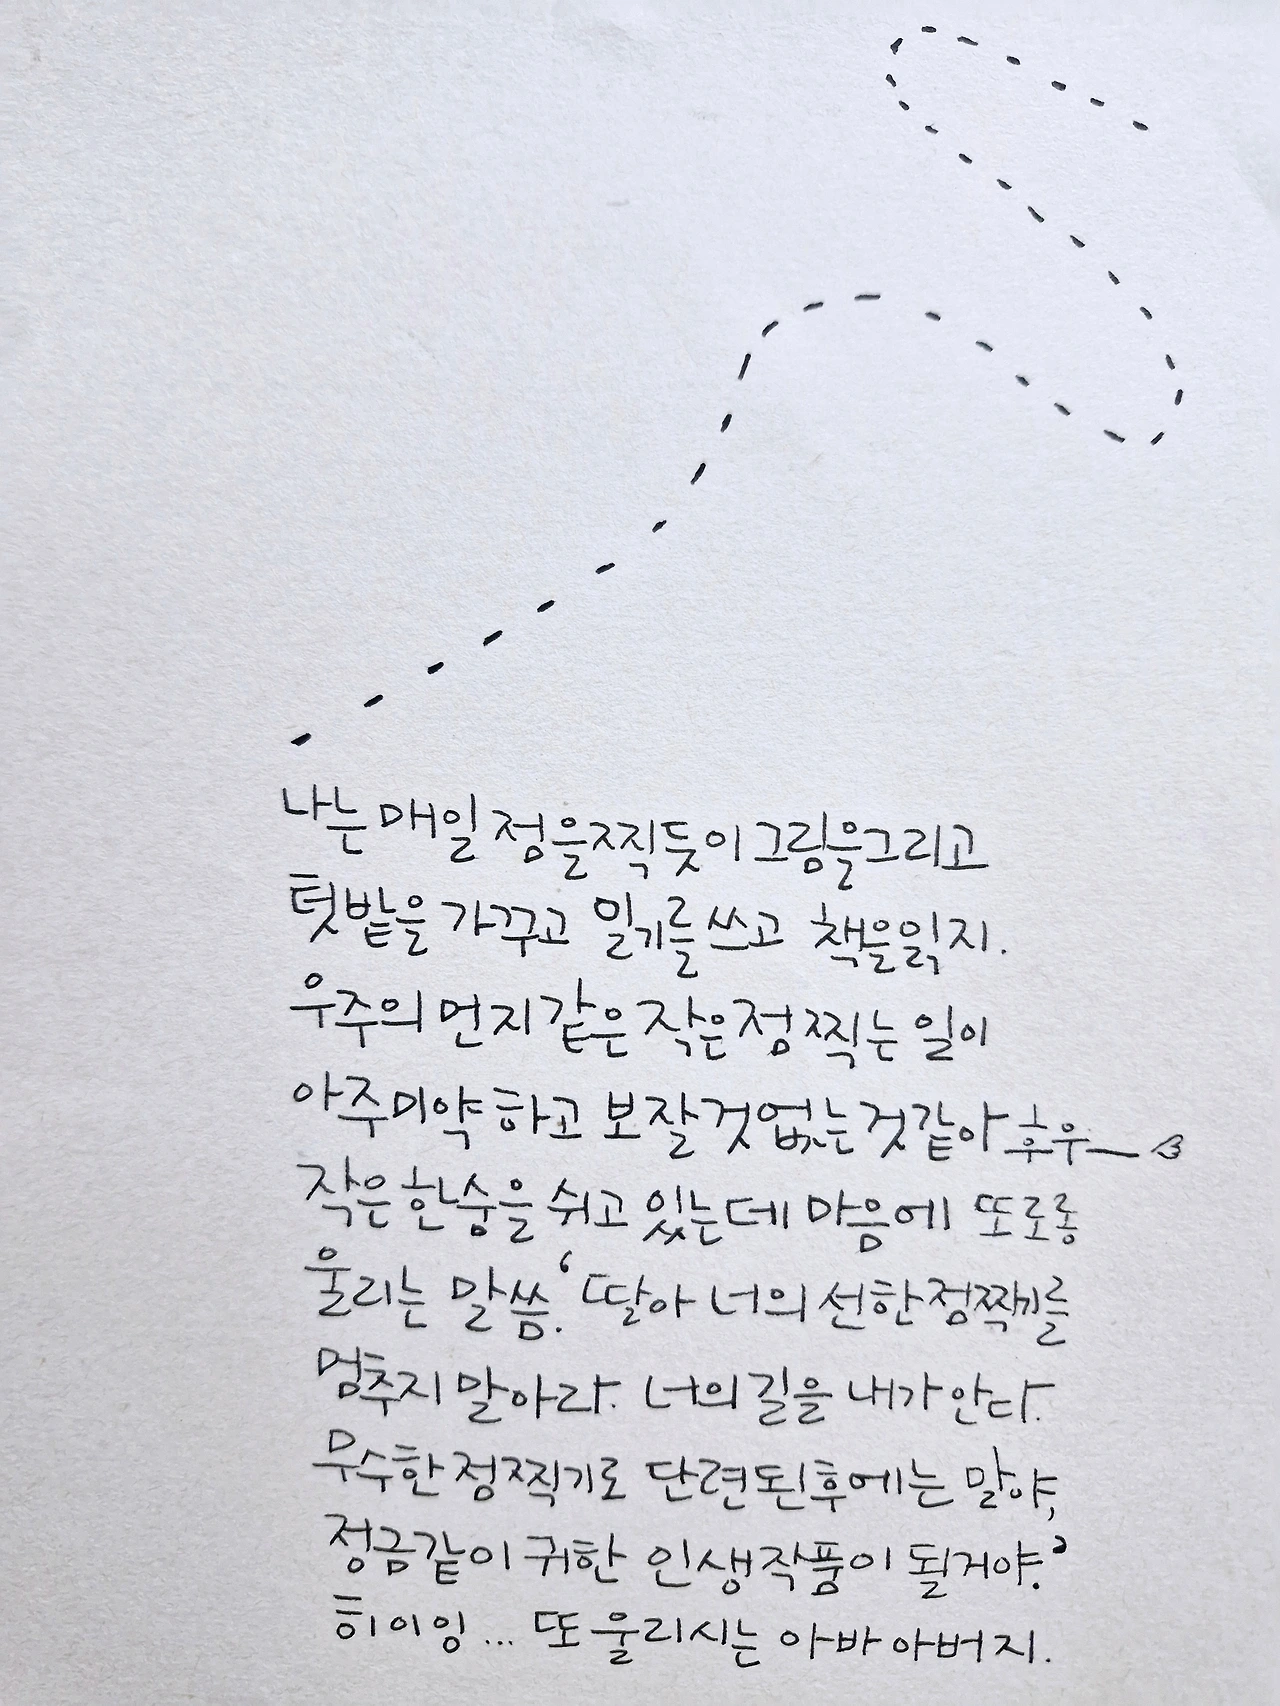 나는 매일 점을 찍듯이 그림을 그리고
텃밭을 가꾸고 일기를 쓰고 책을 읽지.
우주의 먼지같은 작은점 찍는 일이
아주미약 하고 보잘것없는것같아 후우
작은한숨을 쉬고 있는데 마음에 또로롱
울리는 말씀. ‘딸아 너의 선한 점찍기를
멈추지 말아라. 너의 길을 내가 안다.
무수한 점찍기로 단련된 후에는 말야,
정금같이 귀한 인생작품이 될거야.’
히이잉... 또 울리시는 아바 아버지.